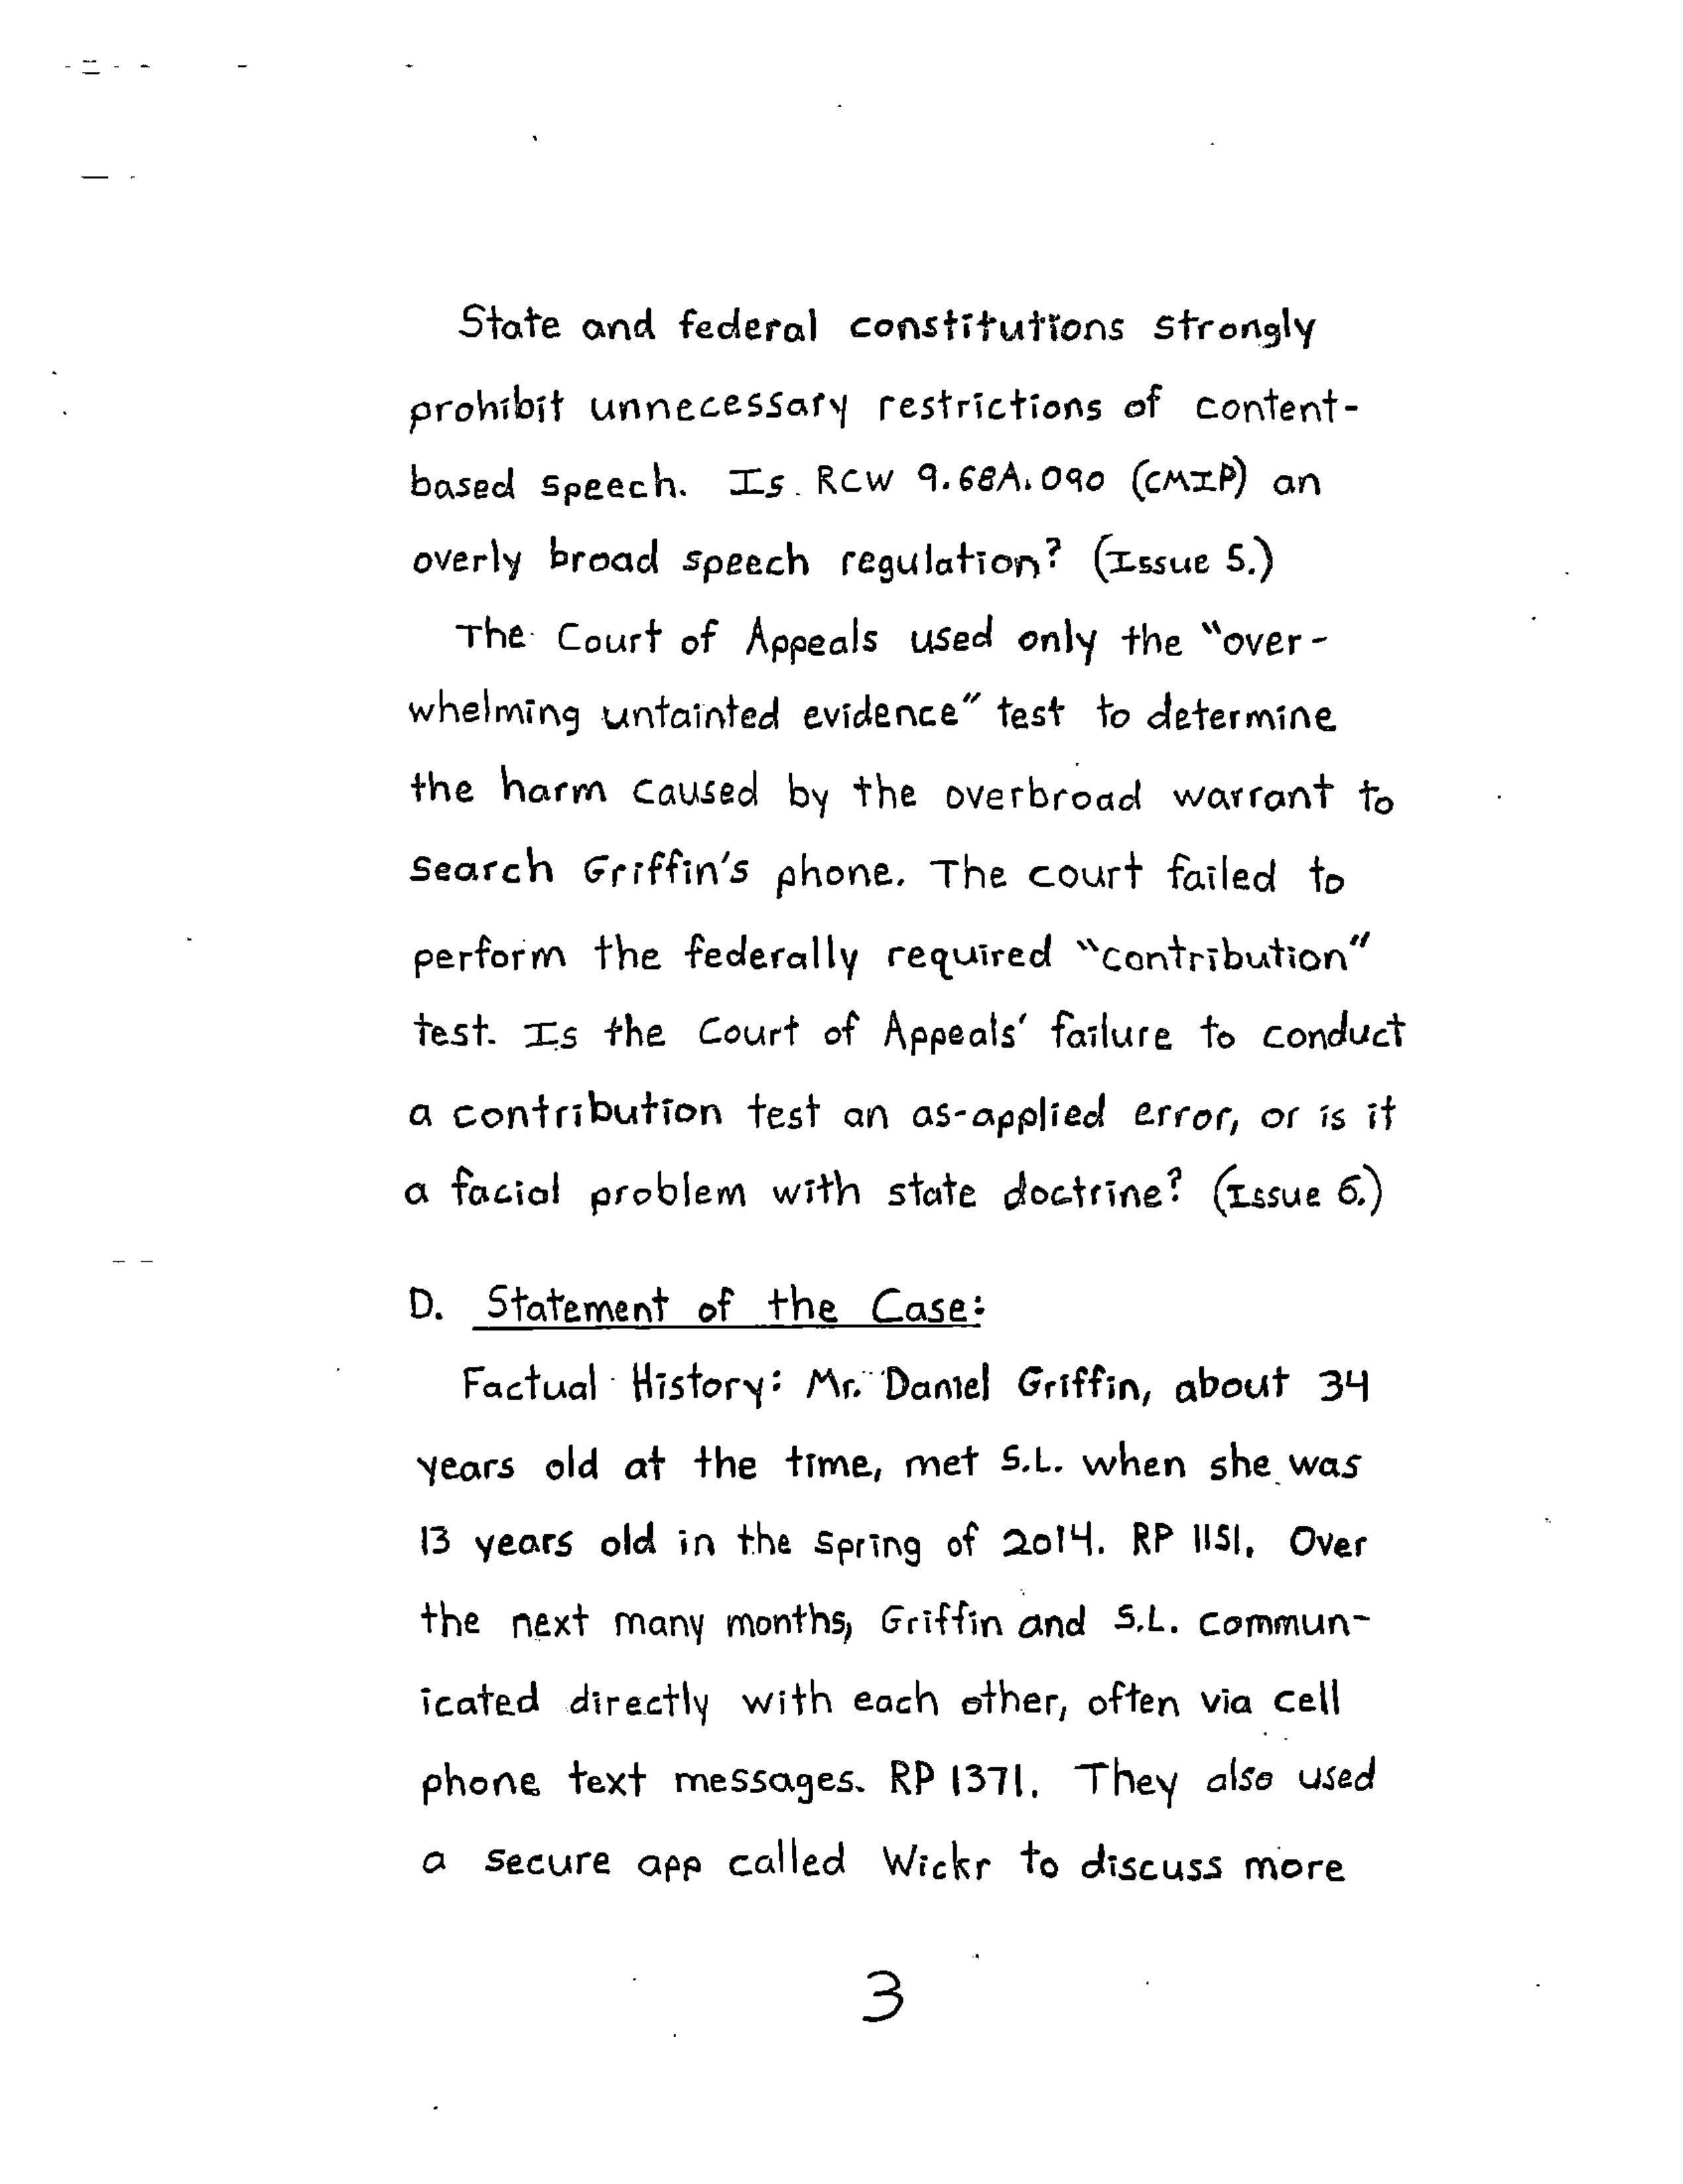 State and federal constitutions strongly
prohibit unnecessary restrictions of content-
based speech. Is RCW 9.68A.090 (CMIP) an
overly broad speech regulation? (Issue 5.)
The Court of Appeals used only the "over-
whelming untainted evidence" test to determine
the harm caused by the overbroad warrant to
search Griffin's phone. The court failed to
perform the federally required "contribution"
test. Is the Court of Appeals' failure to conduct
a contribution test an as-applied error, or is it
a facial problem with state doctrine? (Issue 6.)
D. Statement of the Case:
Factual History: Mr. Daniel Griffin, about 34
years old at the time, met S.L. when she was
13 years old in the spring of 2014. RP 1151. Over
the next many months, Griffin and S.L. commun-
icated directly with each other, often via cell
phone text messages. RP 1371. They also used
a secure app called Wickr to discuss more
3